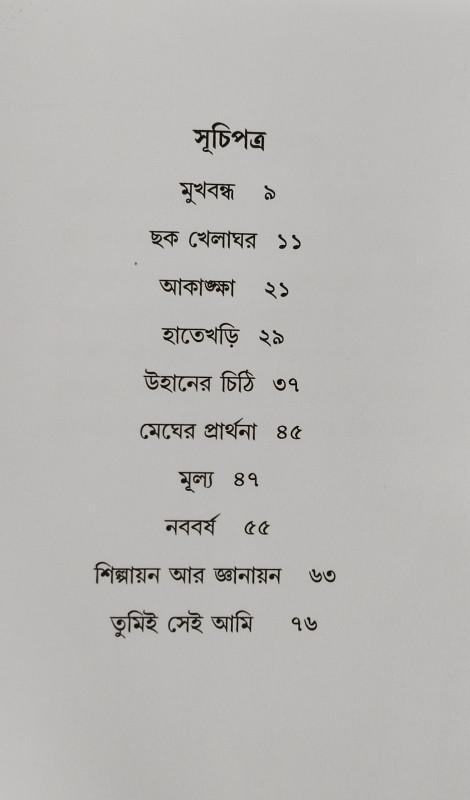 সূচিপত্র
মুখবন্ধ ৯
ছক খেলাঘর ১১
আকাঙ্ক্ষা ২১
হাতেখড়ি ২৯
উহানের চিঠি ৩৭
মেঘের প্রার্থনা ৪৫
মূল্য ৪৭
নববর্ষ ৫৫
শিল্পায়ন আর জ্ঞানায়ন ৬৩
তুমিই সেই আমি ৭৬